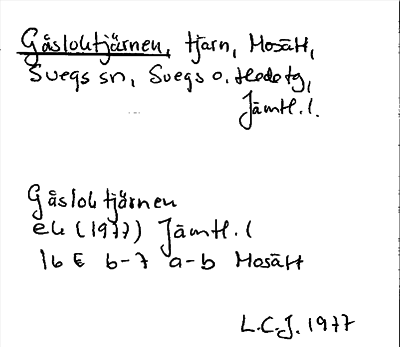 Gåsloktjärnen, tjärn, Mosätt,
Svegs sn, Svegs o. Hede tg,
Jämtl. l.
Gåsloktjärnen
ek (1977) Jämtl. l
16 E 6-7 a-b Mosätt
L.C.J. 1977